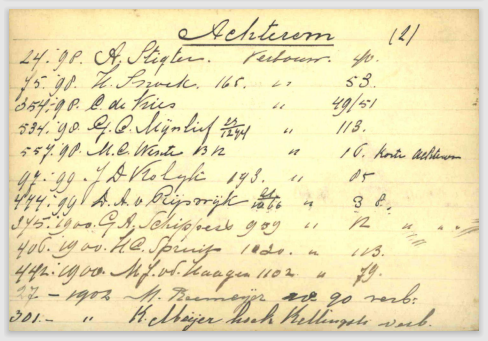 Achterom (2)
24.-'98. A. Stigter. Verbouw. 40.
75.-'98. H. Snoek. 165. " 53.
354-'98. C. de Vries " 49/51
534.-'98. G. C. Mijnlief 1244 " 113.
557-'98. M. C. " 16. Korte Achterom
97.-'99. J D Kolyk 193. " 85
444.-'99 D. A. v Rijswijk " 38.
375.-1900. G. A. Schippers 959 " 12 " "
406.-1900. H C. Spruijt 1020. " 113.
442.-1900. M. J. v. d. Haagen 1102 " 79.
27 - 1902 M. 90 verb.
301.- " K. Meijer hoek verb.